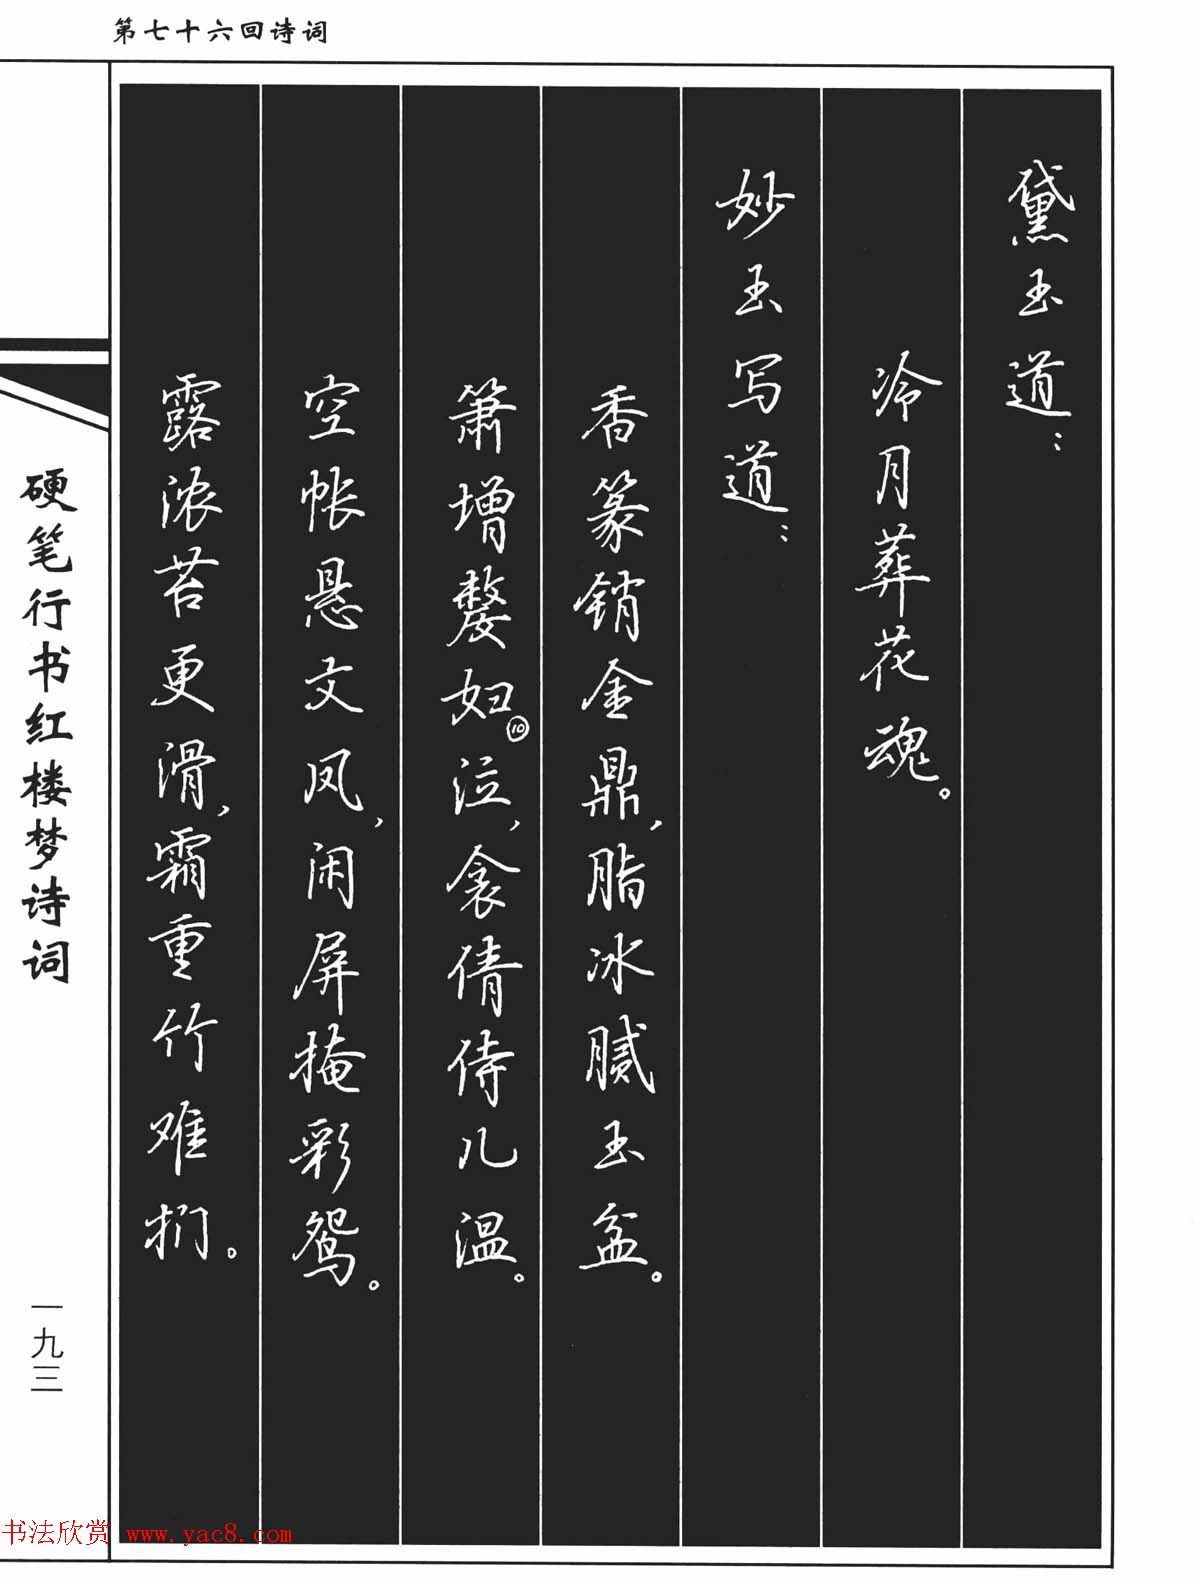 第七十六回诗词
黛玉道：
冷月葬花魂。
妙玉写道：
香篆销金鼎，脂冰腻玉盆。
箫增嫠妇⑩泣，衾倩侍儿温。
空帐悬文凤，闲屏掩彩鸳。
露浓苔更滑，霜重竹难扪。
硬笔行书红楼梦诗词
一九三
书法欣赏 www.yac8.com